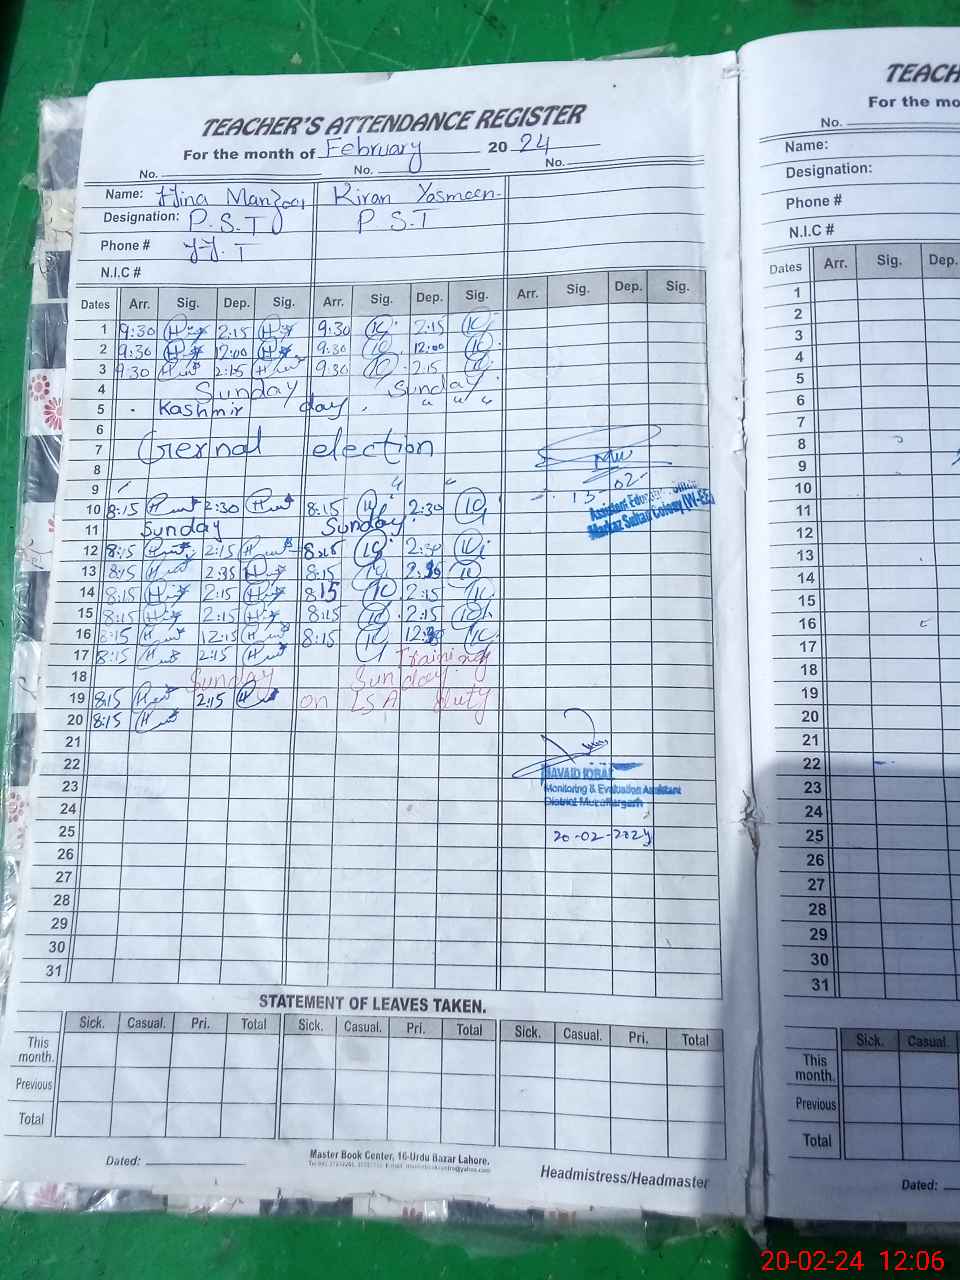 TEACHER'S ATTENDANCE REGISTER
For the month of February 2024
No. No. No.
Name: Hina Manzoor Kiran Yasmeen
Designation: P.S.T P.S.T
Phone #
N.I.C #
Dates Arr. Sig. Dep. Sig. Arr. Sig. Dep. Sig. Arr. Sig. Dep. Sig.
1 9:30 2:15 9:30 2:15
2 9:30 12:00 9:30 12:00
3 9:30 2:15 9:30 2:15
4 Sunday Sunday
5 Kashmir day
6
7 Gernal election
8
9
10 8:15 2:30 8:15 2:30
11 Sunday Sunday
12 8:15 2:15 8:15 2:30
13 8:15 2:35 8:15
14 8:15 2:15 8:15 2:15
15 8:15 2:15 8:15 2:15
16 8:15 12:15 8:15
17 8:15 2:15 Training
18 Sunday Sunday
19 8:15 2:15 on LSA duty
20 8:15
21
22
23
24
25
26
27
28
29
30
31
13-02-
Markaz Sultan Colony (W-EE)
JAVAID IQBAL
Monitoring & Evaluation Assistant
District Muzaffargarh
20-02-2024
STATEMENT OF LEAVES TAKEN.
Sick. Casual. Pri. Total Sick. Casual. Pri. Total Sick. Casual. Pri. Total
This month.
Previous
Total
Dated:
Master Book Center, 16-Urdu Bazar Lahore.
Headmistress/Headmaster
TEACH
For the mo
No.
Name:
Designation:
Phone #
N.I.C #
Dates Arr. Sig. Dep.
1
2
3
4
5
6
7
8
9
10
11
12
13
14
15
16
17
18
19
20
21
22
23
24
25
26
27
28
29
30
31
Sick. Casual.
This month.
Previous
Total
Dated:
20-02-24 12:06